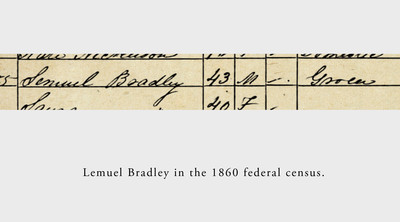 Lemuel Bradley 43 M Grocer
40 F
Lemuel Bradley in the 1860 federal census.